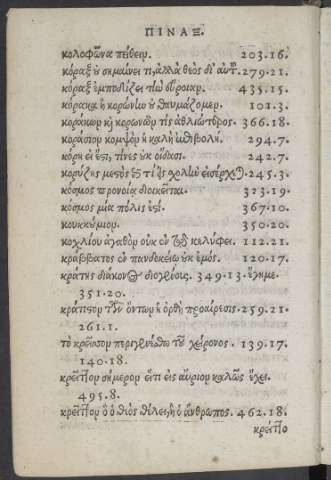 ΠΙΝΑΞ.
κολοφῶνα πείθειν. 203.16.
κόραξ ὐ σημαίνει τι, ἀλλὰ θεὸς δι' αὐτ. 279.21.
κόραξ ἐμποδίζει τὴν οὔροιαν. 435.15.
κόρακα ἢ κορώνην ὐ θαυμάζομεν. 101.3.
κοράκων κỳ κορωνῶν τίς ἀθλιώτερος. 366.18.
κοράσιον κομψὸν ἢ καλὴ ἐπιβολή. 294.7.
κόρη εἰ ἔστι, τίνες ὐκ οἴδασι. 242.7.
κορύζης μεστὸς 245.3.
κόσμος προνοίᾳ διοικεῖται. 313.19.
κόσμος μία πόλις ἐστί. 367.10.
κουκκύμιον. 350.20.
κοχλίου ἀγαθὸν οὐκ ἐν τῷ κελύφει. 112.21.
κράββατος ἐν πανδοκείῳ ὐκ ἐμός. 120.17.
κράτης διάκονος διογένους. 349.13. ἔγημε.
351.20.
κράτιστον τῶν ὄντων ἢ ὀρθὴ προαίρεσις. 259.21.
261.1.
τὸ κρεῖσσον περιγινέσθω τοῦ χείρονος. 139.17.
140.18.
κρεῖττον σήμερον ἔτι εἰς αὔριον καλῶς ἔχει.
495.8.
κρεῖττον ὃ ὁ θεὸς θέλει, ἢ ὁ ἄνθρωπος. 462.18.
κρεῖττο